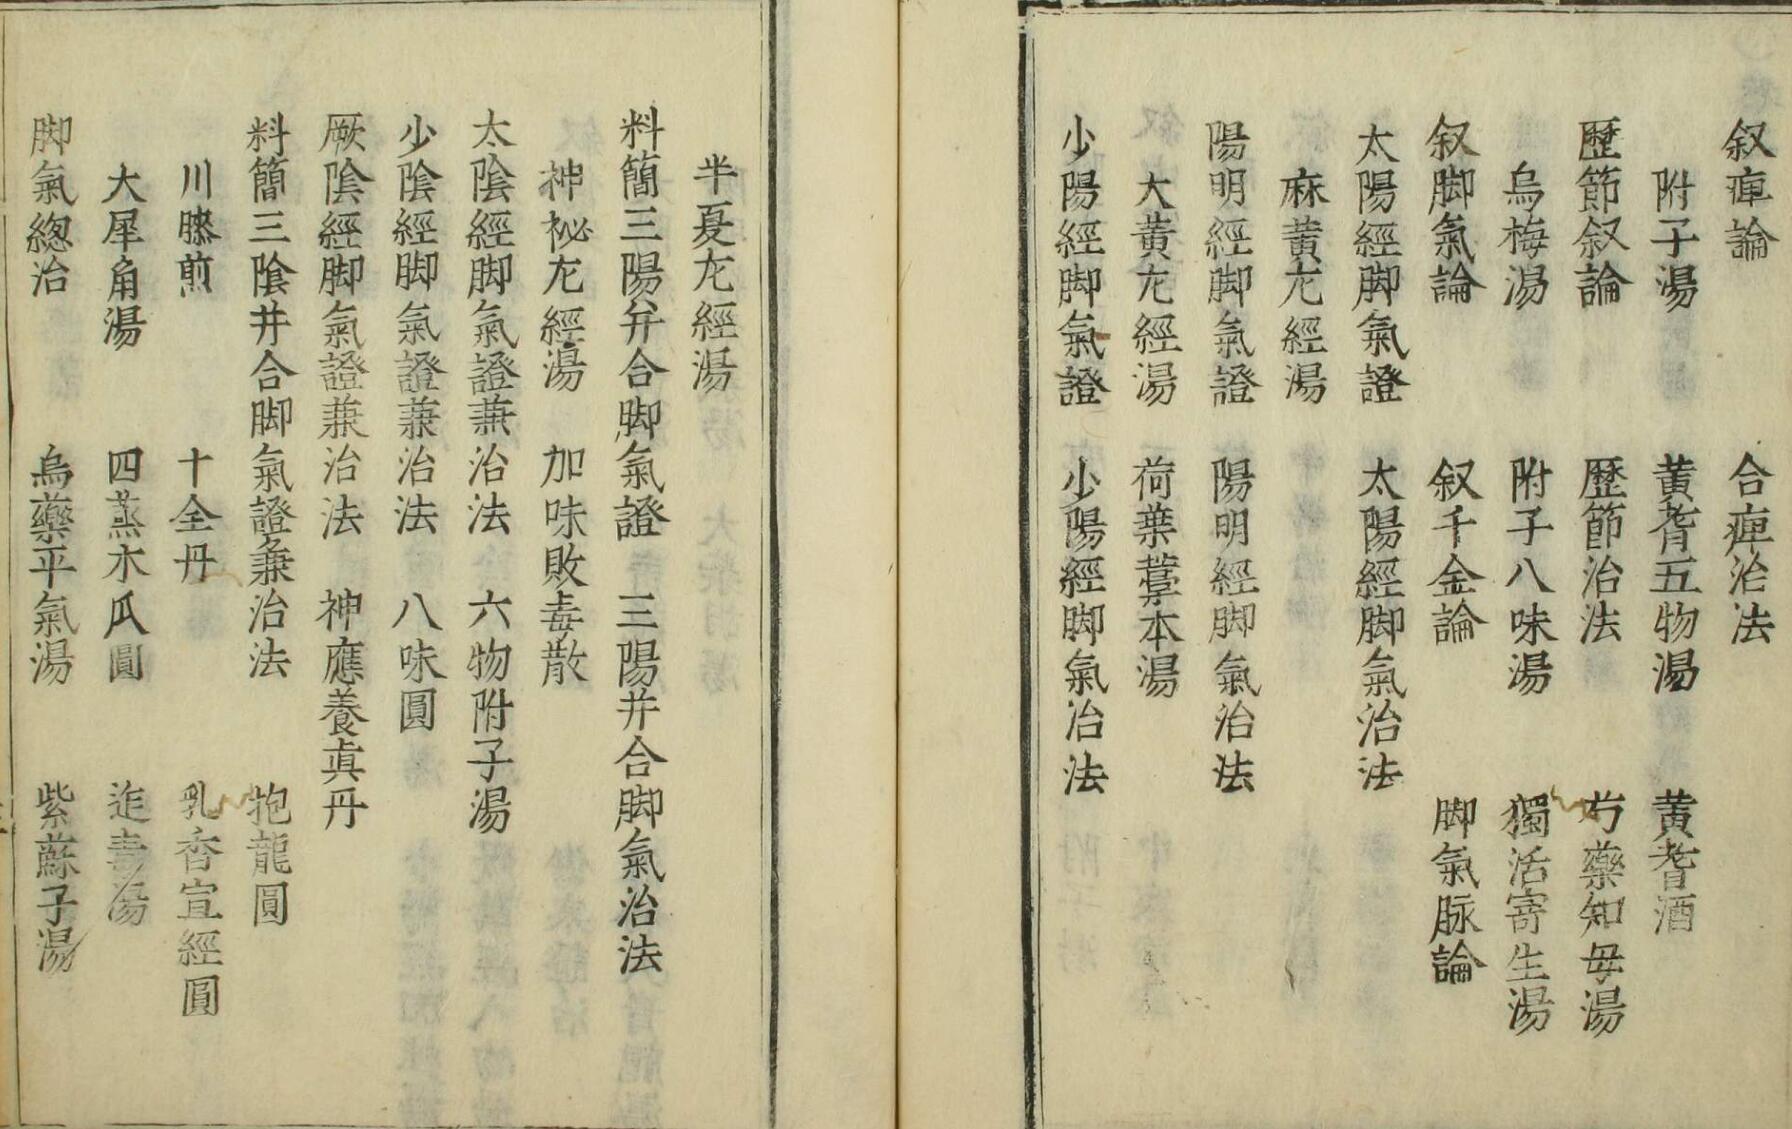 叙痺論 合痺治法
附子湯 黃耆五物湯 黃耆酒
歷節叙論 歷節治法 芍藥知母湯
烏梅湯 附子八味湯 獨活寄生湯
叙脚氣論 叙千金論 脚氣脉論
太陽經脚氣證 太陽經脚氣治法
麻黃左經湯
陽明經脚氣證 陽明經脚氣治法
大黃左經湯 荷葉藁本湯
少陽經脚氣證 少陽經脚氣治法
半夏左經湯
料簡三陽并合脚氣證 三陽并合脚氣治法
神祕左經湯 加味敗毒散
太陰經脚氣證兼治法 六物附子湯
少陰經脚氣證兼治法 八味圓
厥陰經脚氣證兼治法 神應養真丹
料簡三陰并合脚氣證兼治法 抱龍圓
川膝煎 十全丹 乳香宣經圓
大犀角湯 四蒸木瓜圓 追毒湯
脚氣總治 烏藥平氣湯 紫蘇子湯